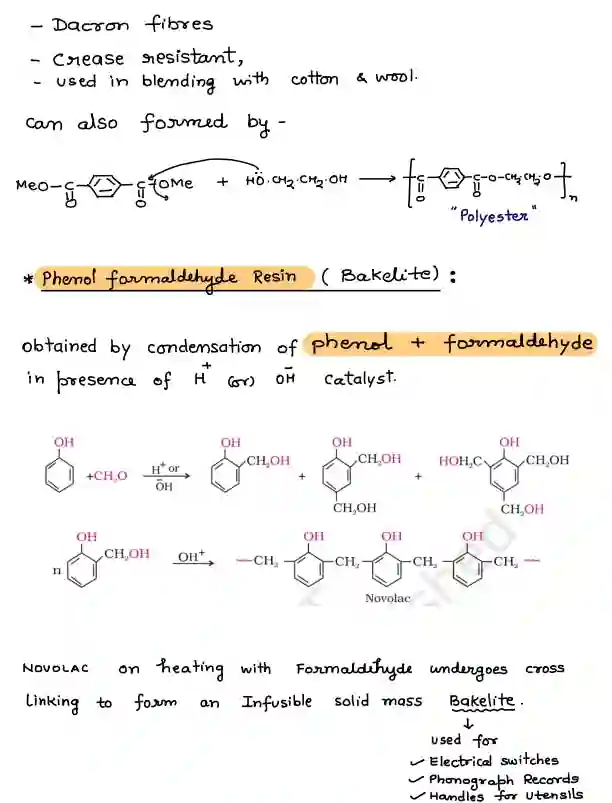 - Dacron fibres
- Crease resistant,
- used in blending with cotton & wool.
can also formed by -
MeO-C-⌬-C-OMe + HÖ.CH2.CH2.OH → [C-⌬-C-O-CH2CH2.O]n
O O O O
"Polyester"
* Phenol formaldehyde Resin (Bakelite) :
obtained by condensation of phenol + formaldehyde
in presence of H+ (or) OH- catalyst.
OH OH OH OH
+CH2O H+ or ŌH → CH2OH + CH2OH + HOH2C CH2OH
CH2OH CH2OH
OH OH OH OH
n CH2OH OH+ → —CH2 CH2 CH2 CH2 —
Novolac
NOVOLAC on heating with Formaldehyde undergoes cross
linking to form an Infusible solid mass Bakelite.
↓
used for
✓ Electrical switches
✓ Phonograph Records
✓ Handles for utensils